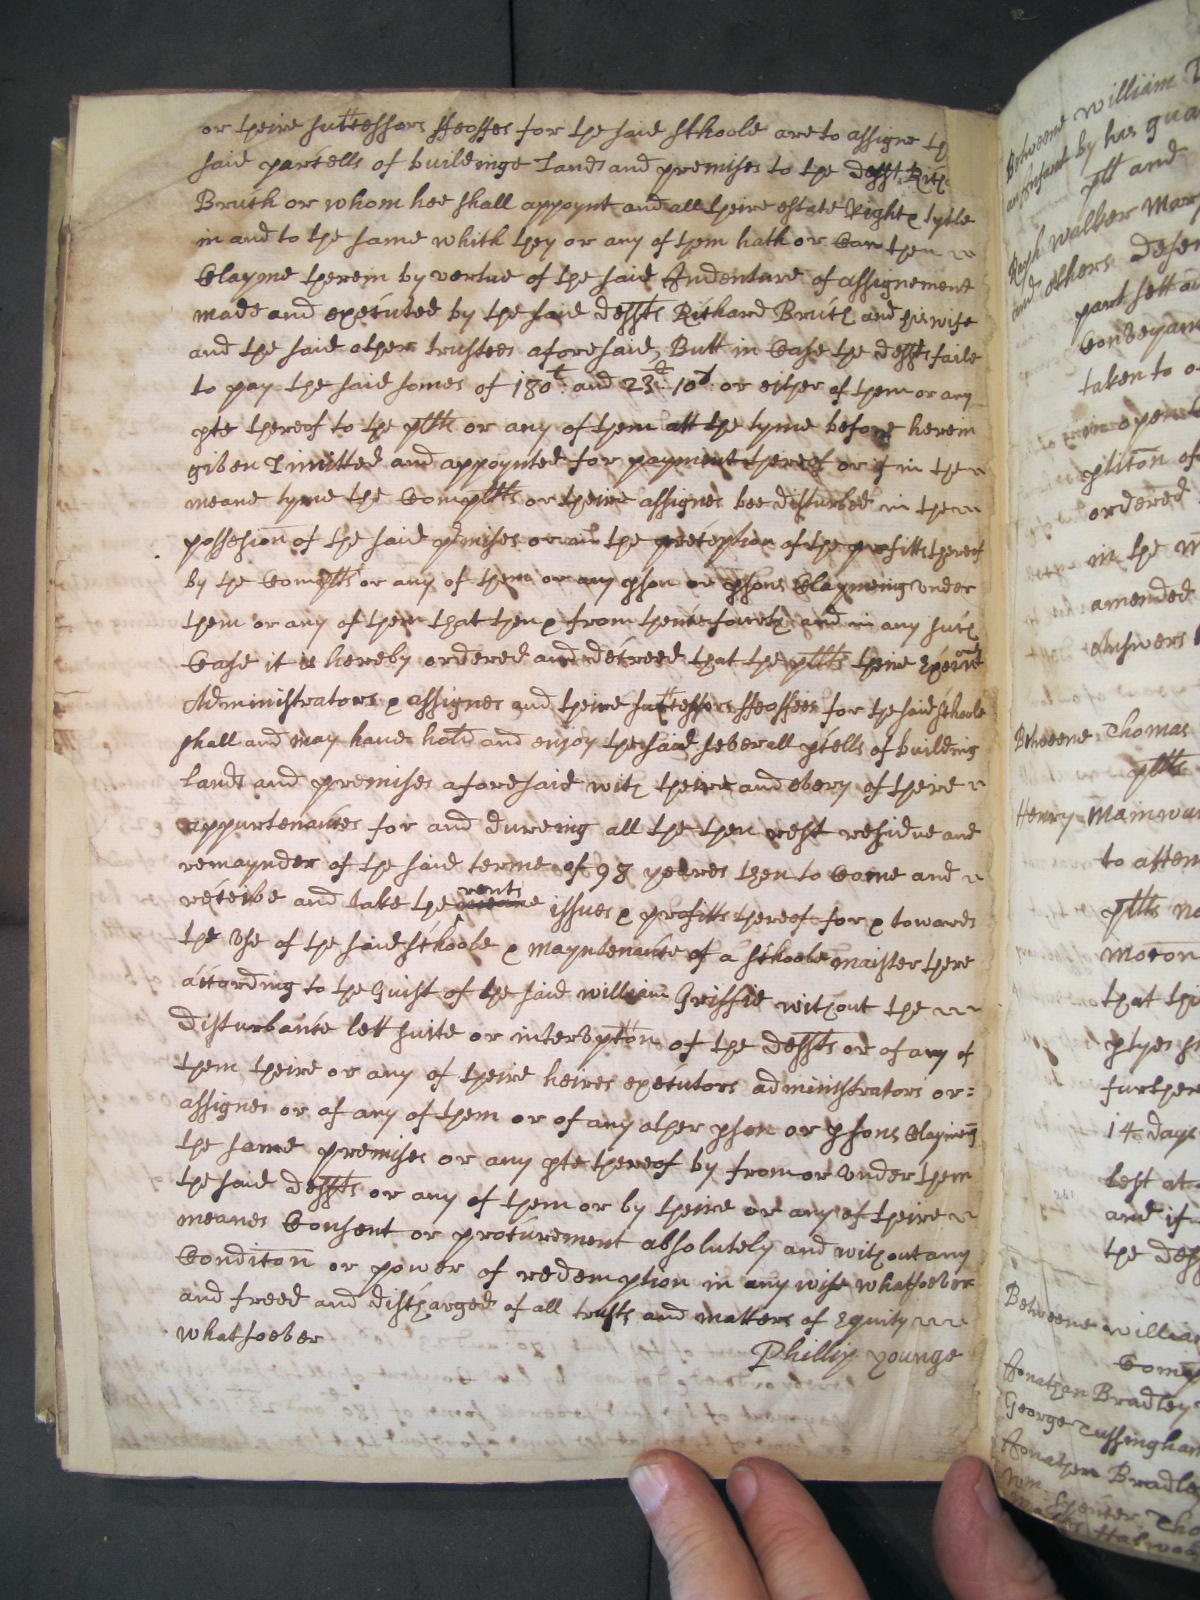 or theire successors ffeoffes for the said schoole are to assigne th
said parcells of buildinge Lands and premises to the defft Rich
Bruch or whom hee shall appoynt and all theire estate Right & tytle
in and to the same which they or any of them hath or Can then
Clayme therein by vertue of the said Indenture of assignement
made and executed by the said deffts Richard Bruch and his wife
and the said other trustees aforesaid, Butt in Case the deffts faile
to pay the said somes of 180l: and 23l: 10s: or either of them or any
pte thereof to the pltts or any of them att the tyme before herein
given Limitted and appoynted for payment thereof or if in the
meane tyme the Compltts or theire assignes bee disturbed in the
possession of the said pmises or in the preception of the profitts thereof
by the Compltts or any of them or any pson or psons Claymeing under
them or any of them that then & from thenceforth and in any such
Case it is hereby ordered and decreed that the pltts theire Executors
Administrators & assignes and theire successors ffeoffees for the said schoole
shall and may have hold and enjoy the said severall pcells of building
Lands and premises aforesaid with theire and every of theire
appurtenances for and dureing all the then rest residue and
remaynder of the said terme of 98 yeares then to Come and
receive and take the rents issues & profitts thereof for & towards
the Use of the said schoole & mayntenance of a schoole maister there
according to the Guift of the said William Griffie without the
disturbance lett suite or interuption of the deffts or of any of
them theire or any of theire heires executors administrators or=
assignes or of any of them or of any other pson or psons Claymeg
the same premises or any pte thereof by from or Under them
the said deffts or any of them or by theire or any of theire
meanes Consent or procurement absolutely and without any
Conditon or power of redemption in any wise whatsoever
and freed and discharged of all trusts and matters of Equity
whatsoever
Phillip Younge
Betweene William
an Infant by his gua
pltt and
Raph Walker Mary
and others defen
part sett
Conveyan
taken to
in open
pliton of
ordered
in the
amended
Answers
Betweene Thomas
pltts
Henry Mainwar
to atten
pltts
moton
that th
ptyes
further
14 days
left at
and if
the def
Betweene Willia
Comp
Jonathan Bradley
George Tussingham
Jonathan Bradle
Wm: Spencer Tho